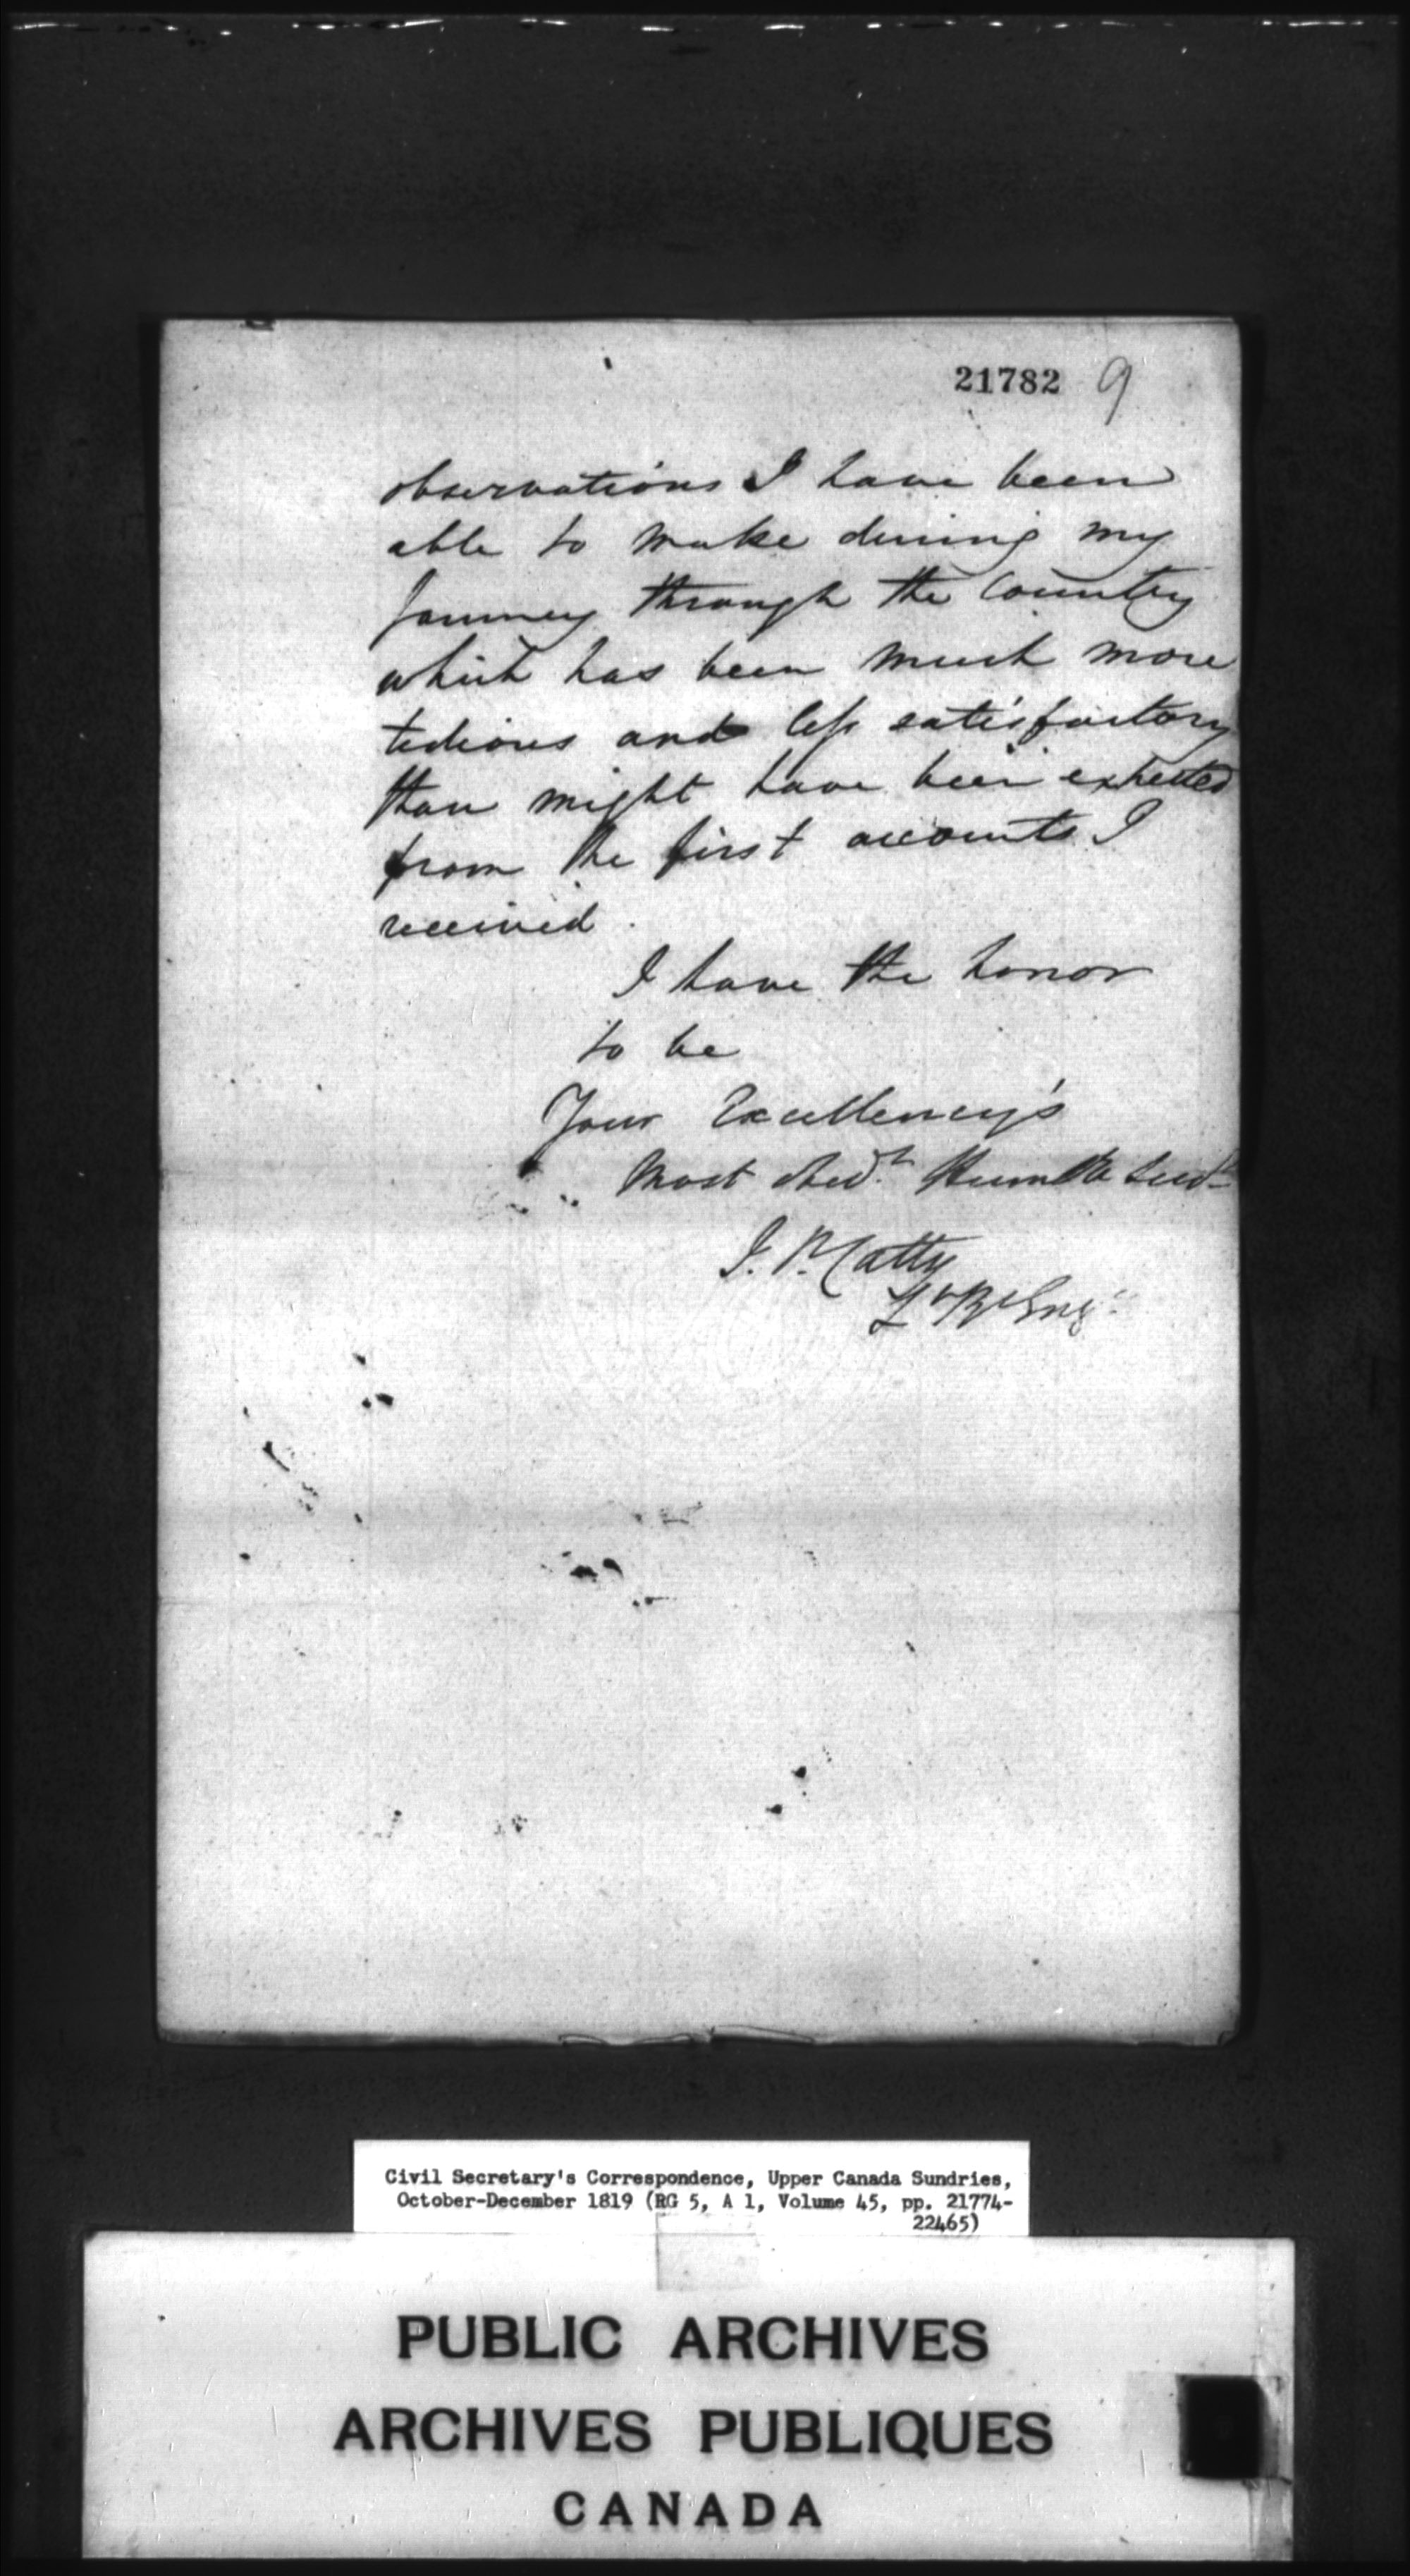 21782 9
observations I have been
able to make during my
Journey through the Country
which has been much more
tedious and less satisfactory
than might have been expected
from the first accounts I
received.
I have the honor
to be
Your Excellency's
Most Obedt. Humble Servt
J. P. Catty
Lt Rl Engs.
Civil Secretary's Correspondence, Upper Canada Sundries,
October-December 1819 (RG 5, A 1, Volume 45, pp. 21774-
22465)
PUBLIC ARCHIVES
ARCHIVES PUBLIQUES
CANADA